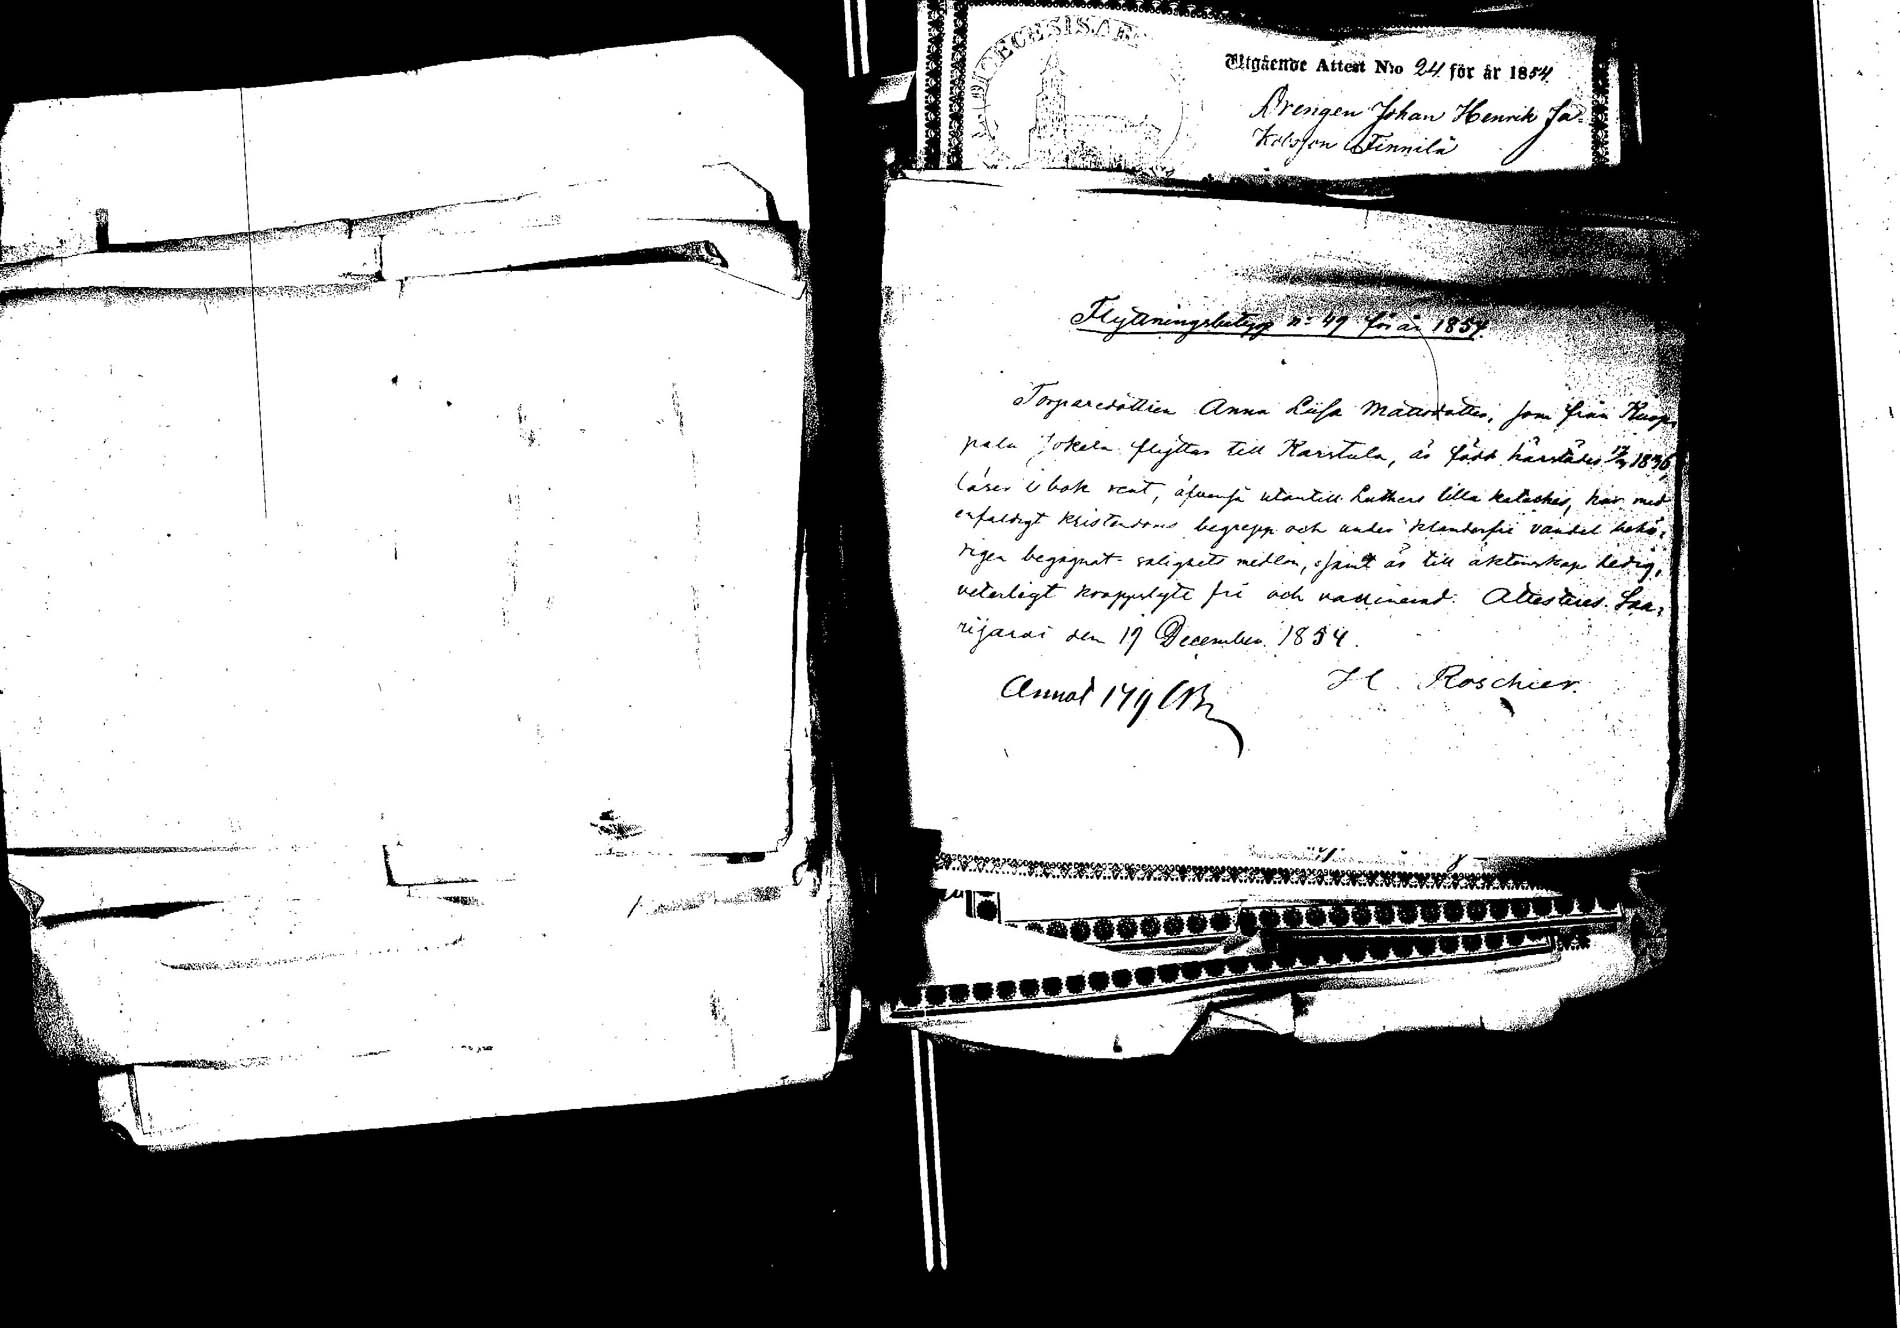 DIECESIS.AE
Utgående Attest N:o 24 för år 1854
Drengen Johan Henrik Ja-
kobsson Finnilä
Flyttningsbetyg n:o 49 för år 1854.
Torparedottren Anna Lisa Mattsdotter, som från Kuop-
pala Jokela flyttas till Karstula, är född härstädes 1836,
läser i bok rent, äfvenså utantill Luthers lilla kateches, har med
enfaldigt kristendoms begrepp och under klanderfri vandel behö-
rigen begagnat salighets medlen, samt är till äktenskap ledig,
veterligt koppslyte fri och vaccinerad. Attesteres. Saa-
rijärvi den 19 December 1854.
H. Roschier.
Annot 179